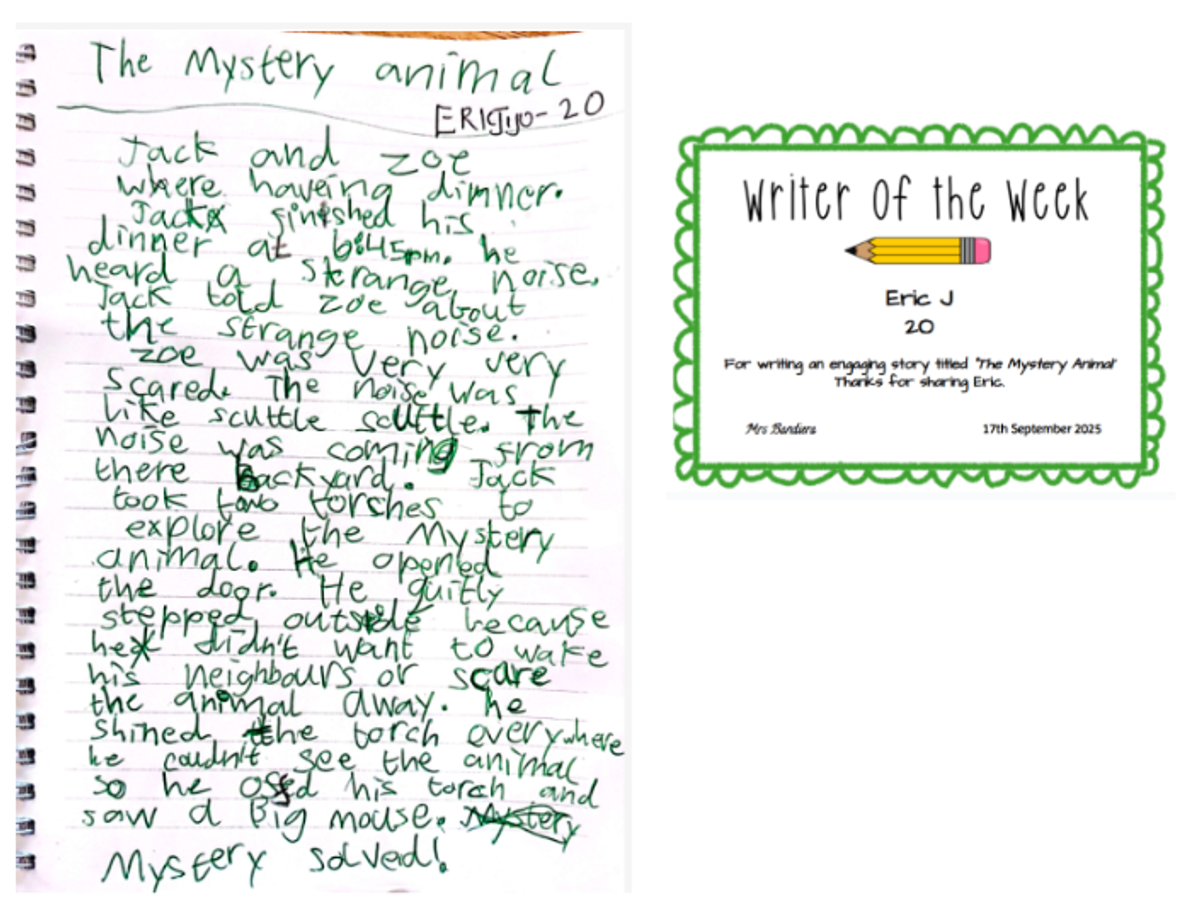 The Mystery animal
ERIC Jijo- 20
Jack and zoe
where haveing dinner.
Jack finished his
dinner at 6:45pm. he
heard a strange noise.
Jack told zoe about
the strange noise.
zoe was very very
scared. The noise was
like scuttle scuttle. The
noise was coming from
there backyard. Jack
took two torches to
explore the Mystery
animal. He opened
the door. He quitly
stepped outside because
he didn't want to wake
his neighbours or scare
the animal away. he
shined the torch everywhere
he coudn't see the animal
so he offed his torch and
saw a Big mouse. Mystery
Mystery solved!
Writer of the Week
Eric J
20
For writing an engaging story titled "The Mystery Animal"
Thanks for sharing Eric.
Mrs Bandiera
17th September 2025